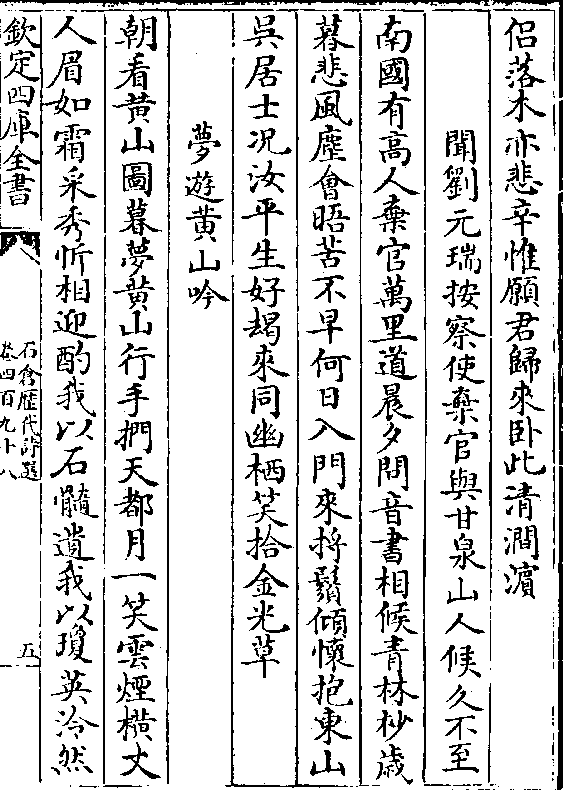 侣落木亦悲辛惟願君歸來卧此清澗濵
聞劉元瑞按察使棄官與甘泉山人候久不至
南國有高人棄官萬里道晨夕問音書相候青林杪歲
暮悲風塵會晤苦不早何日入門來捋鬚傾懷抱東山
吳居士况汝平生好朅來同幽栖笑拾金光草
夢遊黄山吟
朝看黄山圖暮夢黄山行手捫天都月一笑雲煙横丈
人眉如霜采秀忻相迎酌我以石髓遺我以瓊英泠然
欽定四庫全書
石倉歴代詩選
卷四百九十八
五